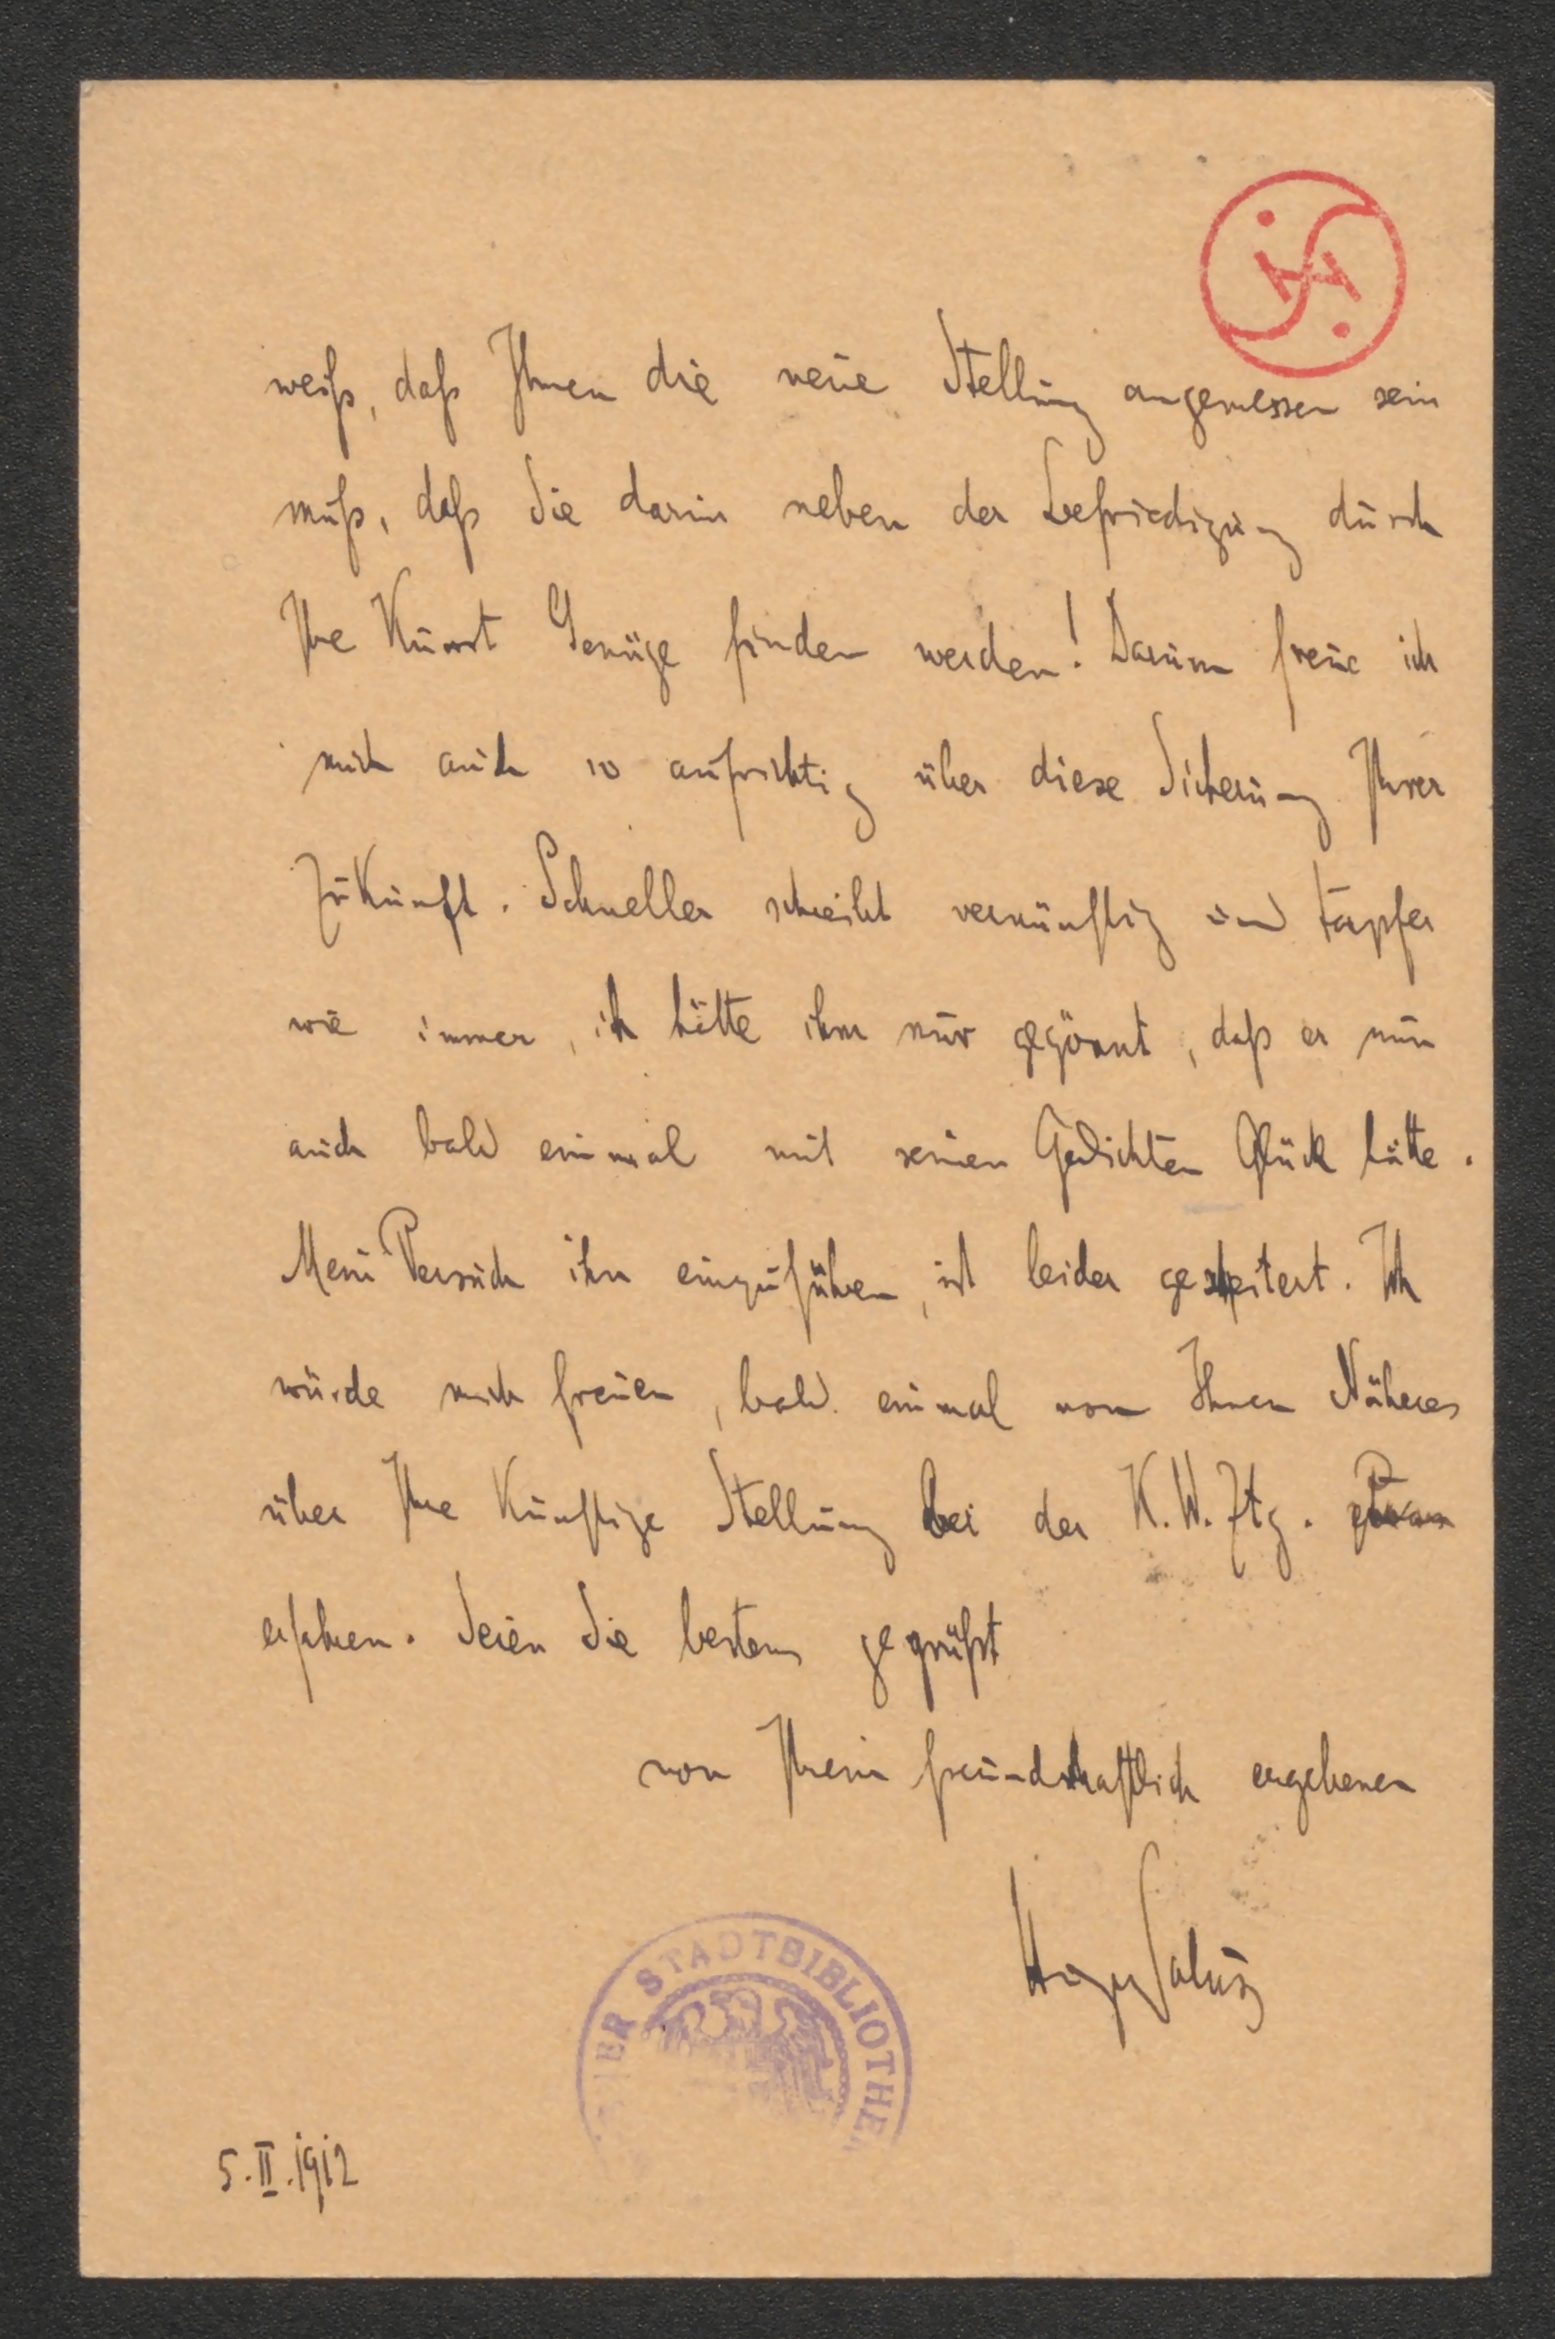 weiß, daß Ihnen die neue Stellung angemessen sein
muß, daß Sie darin neben der Befriedigung durch
Ihre Kunst Genüge finden werden! Darum freue ich
mich auch so aufrichtig über diese Sicherung Ihrer
Zukunft. Schneller schreibt vernünftig und tapfer
wie immer, ich hätte ihm nur gegönnt, daß er nun
auch bald einmal mit seinen Gedichten Glück hätte.
Mein Versuch ihn einzuführen, ist leider gescheitert. Ich
würde mich freuen, bald einmal von Ihnen Näheres
über Ihre künftige Stellung bei der K.W.Ztg.
erfahren. Seien Sie bestens gegrüßt
von Ihrem freundschaftlich ergebenen
Hugo Salus
STADTBIBLIOTHEK
5.II.1912